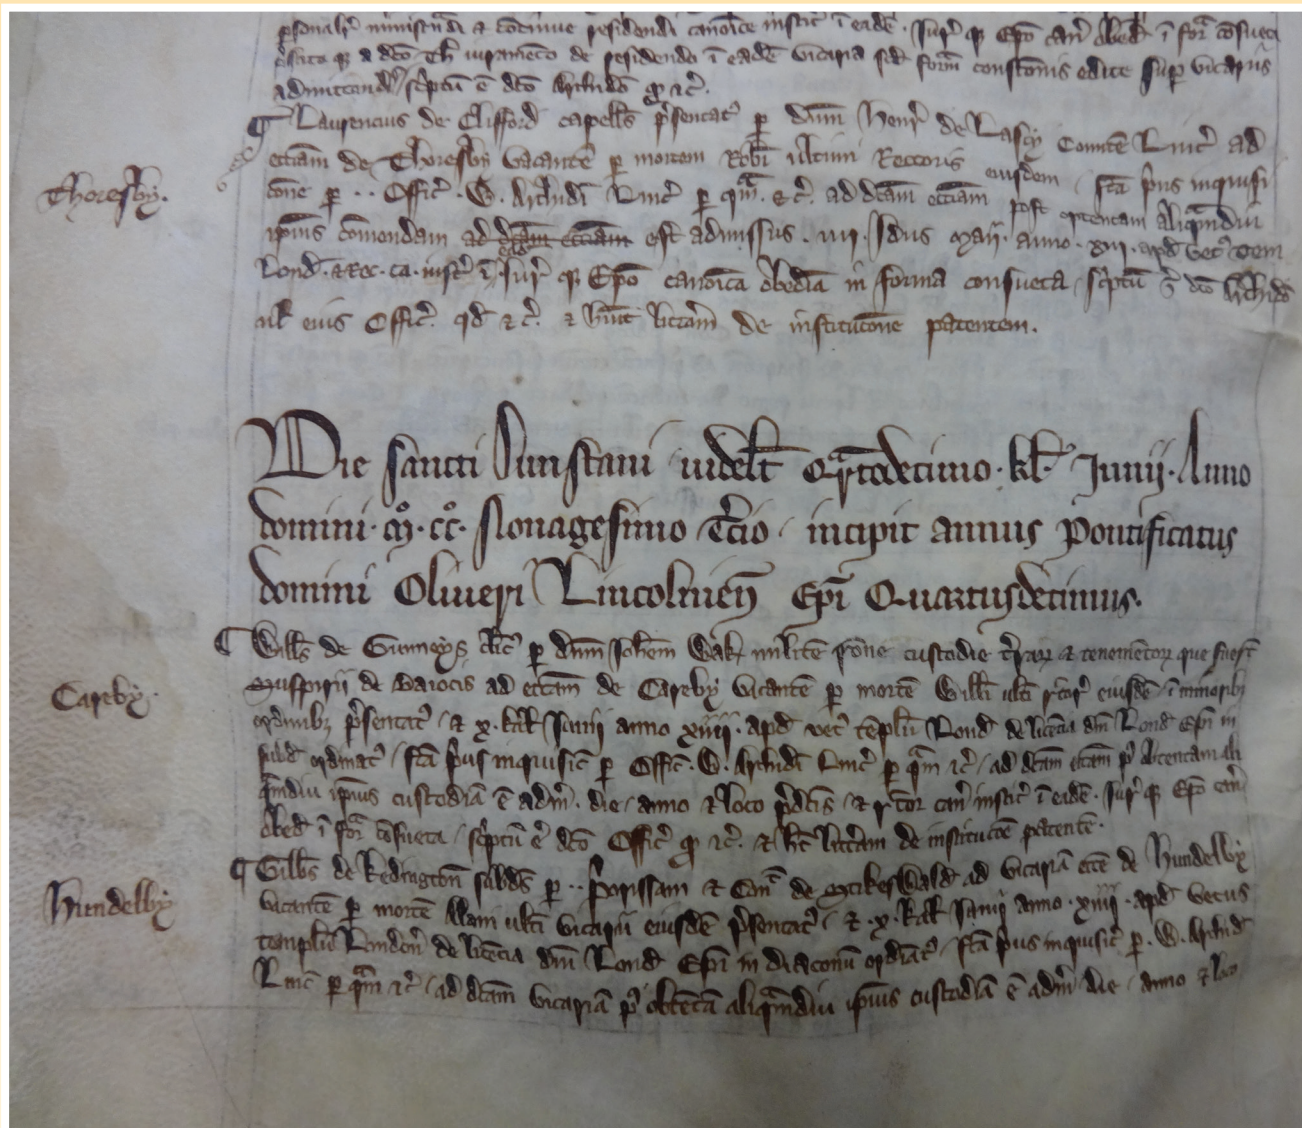 personalit' ministrandi & continue residendi canonice instit' ī eadē. Jur' q̨ Ep̄o can' obed' ī for̄a cōsueta
p̄stito q̨ a dc̄o Th' iuramēto de residendo ī eadē vicaria sc̄d formā constōnis edite sup̱ vicariis
admittend' sc'ptū ē dc̄o Archid' q̨ &c'.
¶ Laurencius de Clifford capell's p̄sentat' p̱ dn̄m Henr' de Lascy Comitē Linc' ad
Thoresby.
ecc̄am de Thoresby vacantē p̱ mortem Rob̄i ultimi Rectoris eiusdem fc̄a p̄us inquisi
cōne p̱ .. Offic' . W . Archid̄i Linc' p̱ qm̄ . &c'. ad dc̄am ecc̄am post optentam aliqᵃmdiu
ip̄ius cōmendam ad dc̄am ecc̄am est admissus . iiii . Idus Maii . anno . xiii . apd' vet' Tem
Lond' . & Rec . ca . instit' ī . Jur' q̨ Ep̄o canoīca obediā in forma consueta sc'ptū ē dc̄o Archid'
ul eius Offic'. qd' &c'. & h̄uit litt̄am de institucōne patentem.
Die sancti Dunstani videlt' Qᵃrtodecimo . kl' . Junii . Anno
domini . mº . ccº . Nonagesimo t'cio . incipit annus Pontificatus
domini Oliueri Lincolnien̄ Ep̄i Quartusdecimus.
¶ Will's de Gunneys cl'ic' p̱ dn̄m Joh̄em Wak' militē r̄one custodie t'rar̨ & tenemētor̨ que fuer̄t
Careby.
de Baiocis ad ecc̄am de Careby vacantē p̱ mortē Will̄i ult̄i r̄cor' eiusdē ī minorib̨
ordinib̨ p̄sentat' & x . kal' Junii anno xiiii . apd' vet' tēplū Lond' de lic̄cia dn̄i Lond' Ep̄i in
subd' ordinat' fc̄a p̄us inquisic̄ p̱ Offic' . W . Archid̄i Linc' p̱ qᵃm &c' ad dc̄am ecc̄am p' obtentam ali
qᵃmdiu ip̄ius custodiā ē adm'. die anno & loco p̄dc̄is & r̄cor can' instit' ī eadē . Jur' q̨ Ep̄o can'
obed' ī for̄a cōsueta sc'ptū ē dc̄o Offic' q̨ &c'. & h̄t litt̄am de institucōe patentē.
¶ Gilb's de Kedington' subd's p̱ .. Priorissam & Con̄t de Stikeswald' ad vicariā ecc̄e de Hundelby
Hundelby
vacantē p̱ mortē Alani ult̄i vicarii eiusdē p̄sentat' & . x . kal' Junii anno . xiiii . apd' vetus
templū London' de lic̄cia dn̄i Lond' Ep̄i in diaconū ordīat' fc̄a p̄us inquisic' p̱ . W . Archid'
Linc' p̱ qᵃm &c' ad dc̄am vicariā p' obtētā aliqᵃmdiu ip̄ius custodiā ē adm' die anno & loco